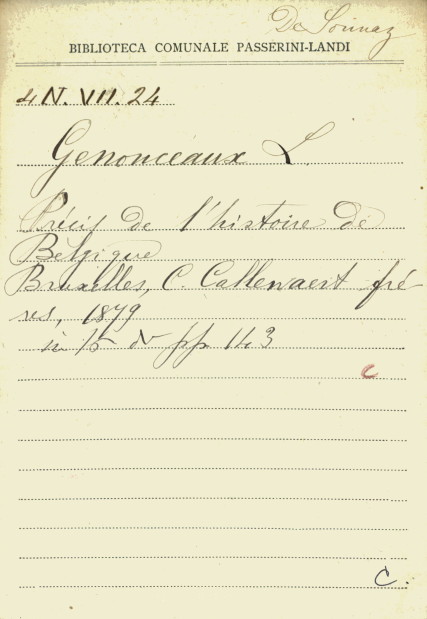 De Sonnaz
BIBLIOTECA COMUNALE PASSERINI-LANDI
4 N. VII. 24
Genonceaux L.
Précis de l'histoire de
Belgique
Bruxelles, C. Callewaert fré
res, 1879
in 15 d pp. 143
c
C.